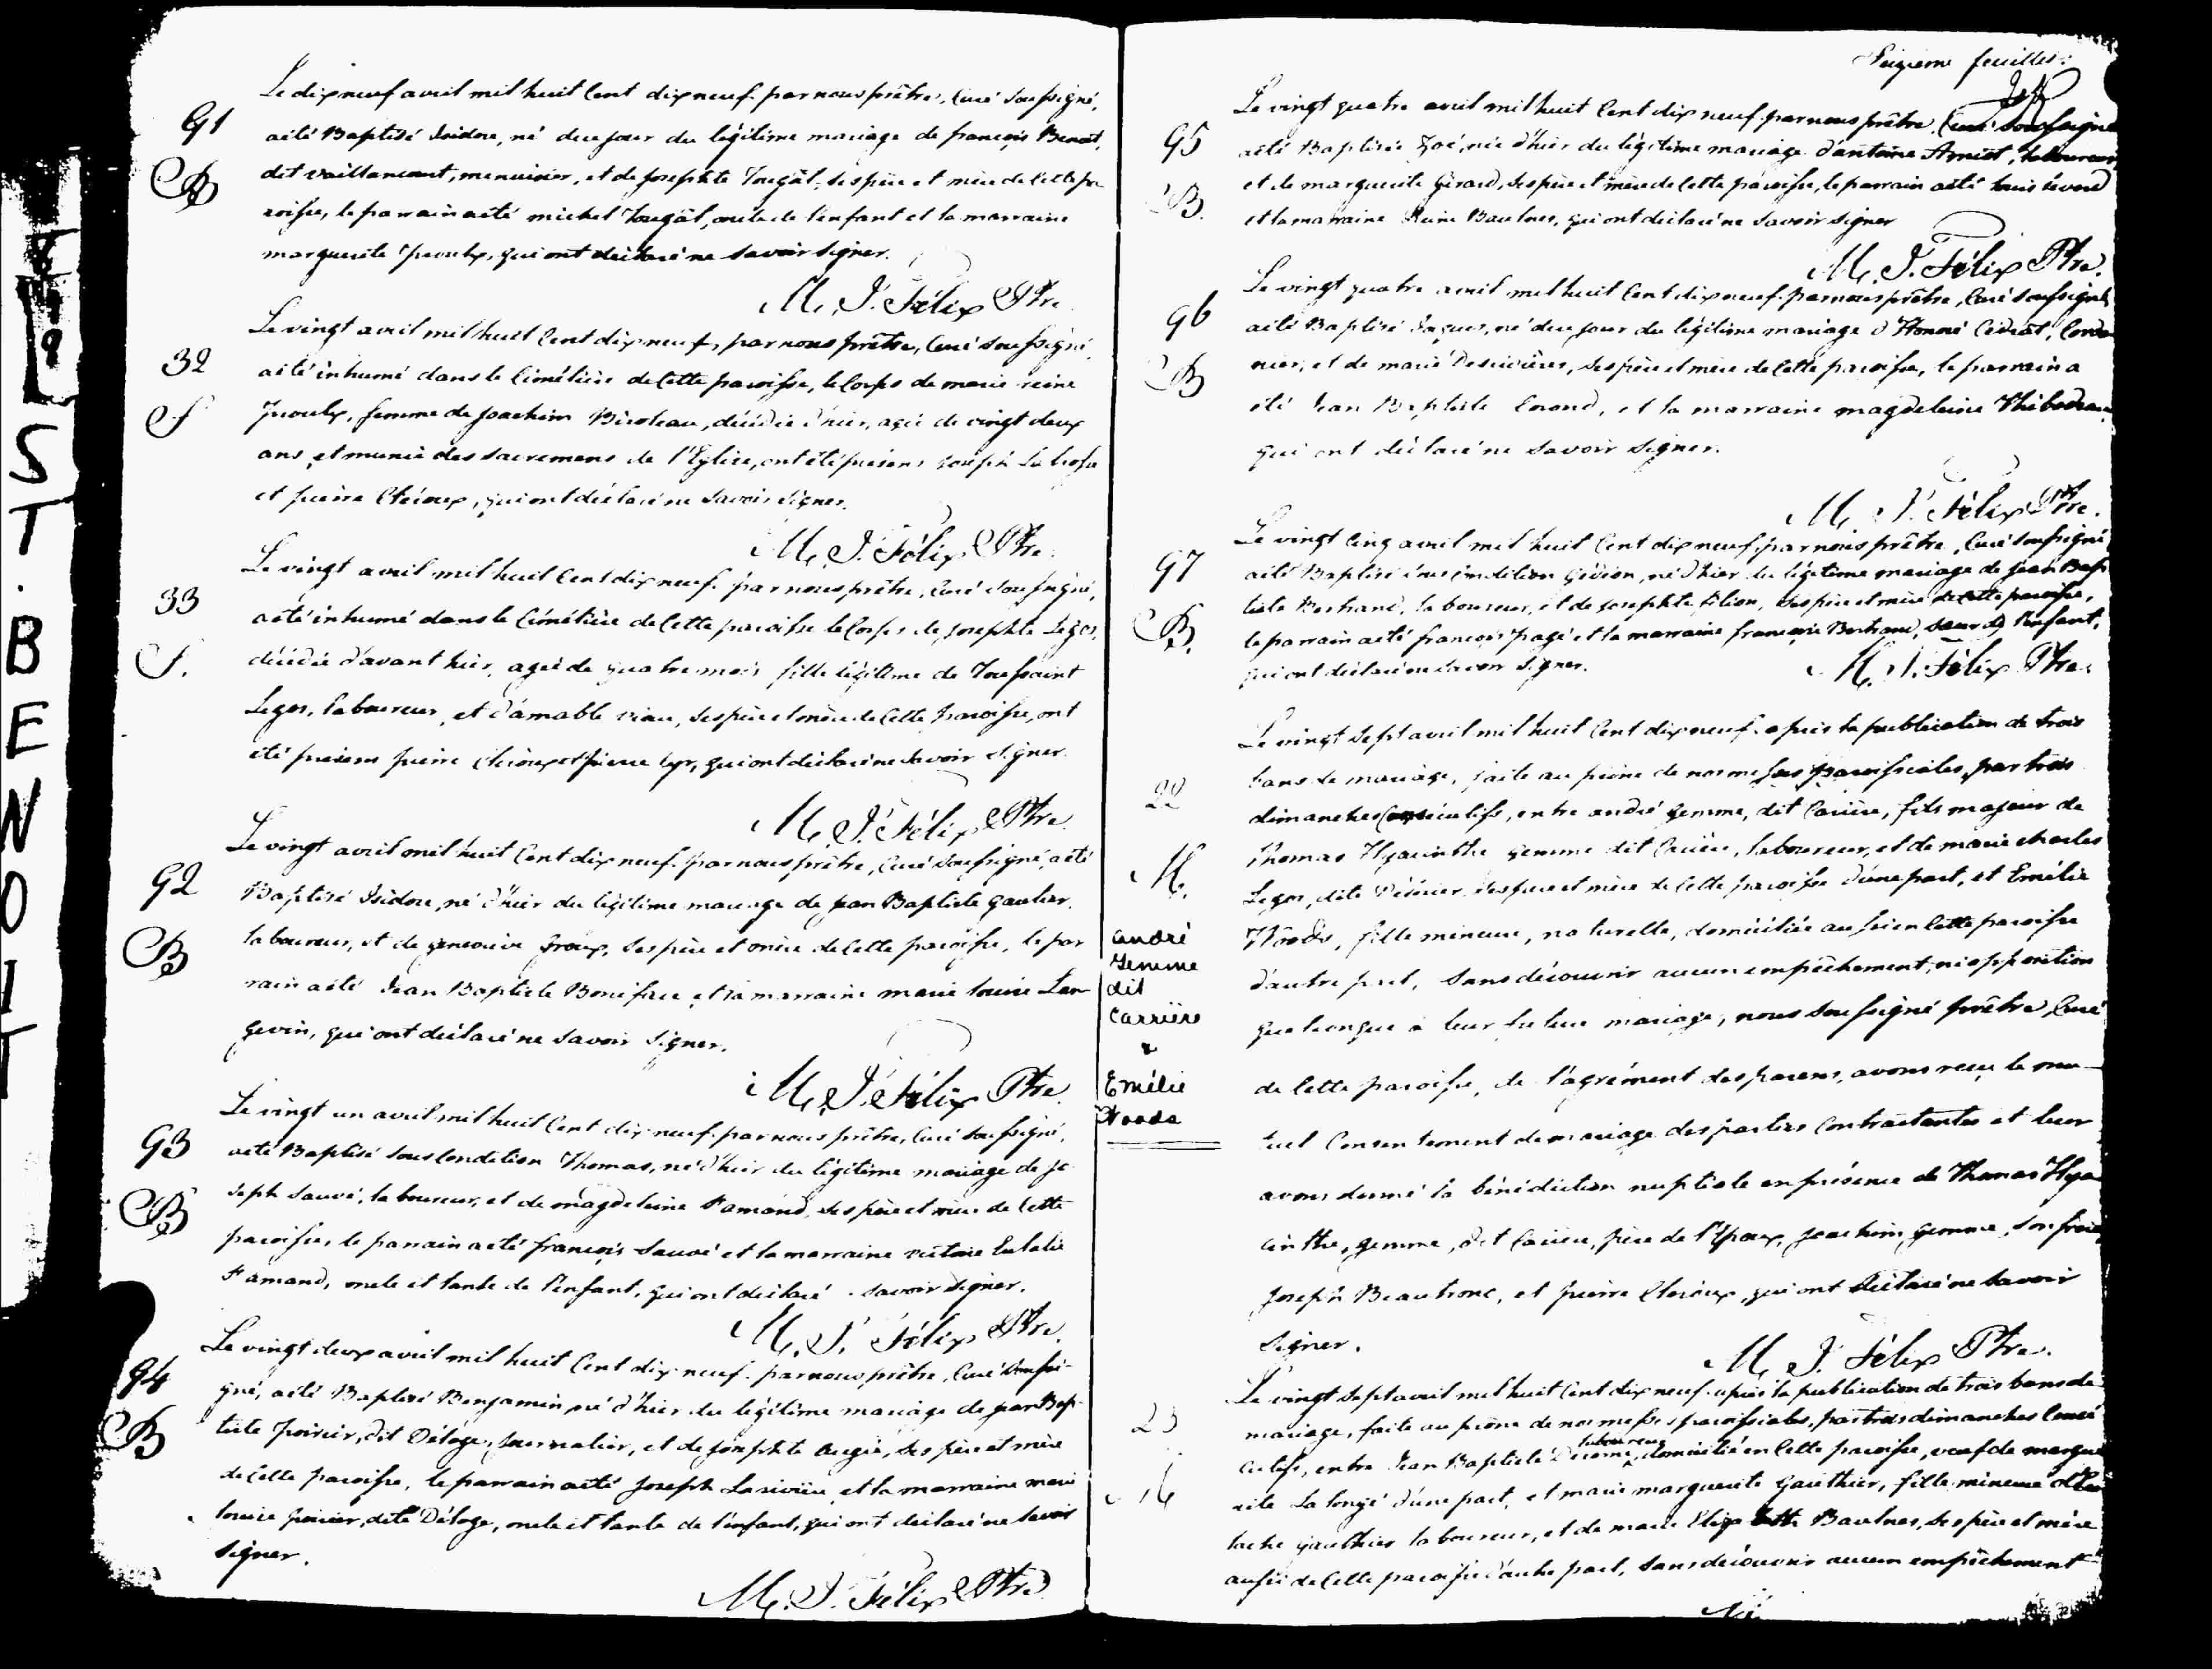 1819
ST. BENOIT
91
B
Le dix neuf avril mil huit Cent dix neuf par nous prêtre, Curé Soussigné,
a été Baptisé Isidore, né du jour du légitime mariage de françois Benoit,
dit vaillancourt, menuisier, et de Josephte ses père et mère de Cette pa
roisse, le parrain a été michel oncle de l'enfant et la marraine
marguerite Proulx, qui ont déclaré ne savoir signer.
M. J. Félix Ptre
32
S
Le vingt avril mil huit Cent dix neuf, par nous prêtre, Curé soussigné
a été inhumé dans le Cimétière de Cette paroisse, le Corps de marie reine
Proulx, femme de Joachim Biroleau, décédée d'hier, agée de vingt deux
ans et munie des sacremens de l'Eglise, ont été présens Joseph
et pierre Cléroux, qui ont déclaré ne savoir signer.
M. J. Félix Ptre.
33
S.
Le vingt avril mil huit Cent dix neuf. par nous prêtre, Curé soussigné,
a été inhumé dans le Cimétière de Cette paroisse le Corps de Josephte Legor,
décédée d'avant hier, agée de quatre mois fille légitime de Toussaint
Legor, laboureur, et d'amable viau, ses père et mère de Cette paroisse, ont
été présens pierre Cléroux et pierre qui ont déclaré ne savoir signer.
M. J. Félix Ptre
92
B
Le vingt avril mil huit Cent dix neuf. par nous prêtre, Curé soussigné, a été
Baptisé Isidore, né d'hier du légitime mariage de jean Baptiste Gautier,
laboureur, et de geneviève ses père et mère de Cette paroisse, le par
rain a été Jean Baptiste Boniface et la marraine marie louise Lan
gevin, qui ont déclaré ne savoir signer.
M. J. Félix Ptre
93
B
Le vingt un avril mil huit Cent dix neuf. par nous prêtre, Curé soussigné,
a été Baptisé sous Condition Thomas, né d'hier du légitime mariage de jo
seph Sauvé, laboureur, et de magdeleine ses père et mère de Cette
paroisse, le parrain a été françois Sauvé et la marraine victoire Eulalie
oncle et tante de l'enfant, qui ont déclaré savoir signer.
M. J. Félix Ptre.
94
B
Le vingt deux avril mil huit Cent dix neuf. par nous prêtre, Curé soussi-
gné, a été Baptisé Benjamin né d'hier du légitime mariage de jean Bap-
tiste poirier, dit Déloge, journalier, et de josephte ses père et mère
de Cette paroisse, le parrain a été Joseph Larivière et la marraine marie
louise poirier, dite Déloge, oncle et tante de l'enfant, qui ont déclaré ne savoir
signer.
M. J. Félix Ptre
Seizieme feuillet.
95
B.
Le vingt quatre avril mil huit Cent dix neuf. par nous prêtre, Curé soussigné
a été Baptisée Zoé, née d'hier du légitime mariage d'antoine Amiot, laboureur
et de marguerite Girard, ses père et mère de Cette paroisse, le parrain a été
et la marraine Reine Baulnes, qui ont déclaré ne savoir signer
M. J. Félix Ptre.
96
B
Le vingt quatre avril mil huit Cent dix neuf. par nous prêtre, Curé soussigné,
a été Baptisé Jaques, né du jour du légitime mariage d'Honoré Cordo
nier, et de marie Desrivières, ses père et mère de Cette paroisse, le parrain a
été Jean Baptiste et la marraine magdeleine Thibodeau
qui ont déclaré ne savoir signer.
M. J. Félix Ptre.
97
B.
Le vingt Cinq avril mil huit Cent dix neuf. par nous prêtre, Curé soussigné
a été Baptisé sous Condition Gédéon, né d'hier du légitime mariage de jean Bap
tiste Bertrand, laboureur, et de josephte filion, ses père et mère de Cette paroisse,
le parrain a été françois pagé et la marraine françoise Bertrand, soeur de l'enfant,
qui ont déclaré ne savoir signer.
M. J. Félix Ptre.
22
M.
andré
Gemme
dit
Carrière
&
Emélie
Woods
Le vingt sept avril mil huit Cent dix neuf. après la publication de trois
bans de mariage, faite au prône de nos messes paroissiales, par trois
dimanches Consécutifs, entre andré gemme, dit Carière, fils majeur de
Thomas Hyacinthe gemme dit Carière, laboureur, et de marie charles
Legor, dite ses père et mère de Cette paroisse d'une part, et Emélie
Woods, fille mineure, naturelle, domiciliée aussi en Cette paroisse
d'autre part, sans découvrir aucun empêchement, ni opposition
quelconque à leur futur mariage, nous soussigné prêtre Curé
de Cette paroisse, de l'agrément des parens, avons reçu le mu-
tuel Consentement de mariage des parties Contractantes et leur
avons donné la bénédiction nuptiale en présence de Thomas Hya
cinthe, gemme, dit Carière, père de l'Epoux, Joachim gemme, son frère
Joseph Beautronc, et pierre Cléroux, qui ont déclaré ne savoir
signer.
M. J. Félix Ptre.
23
M
Le vingt sept avril mil huit Cent dix neuf. après la publication de trois bans de
mariage, faite au prône de nos messes paroissiales, par trois dimanches Consé
cutifs, entre Jean Baptiste laboureur, domicilié en Cette paroisse, veuf de margue
rite La longé d'une part, et marie marguerite Gauthier, fille mineure
tache gauthier laboureur, et de marie Elizabeth Baulnes, ses père et mère
aussi de Cette paroisse d'autre part, sans découvrir aucun empêchement